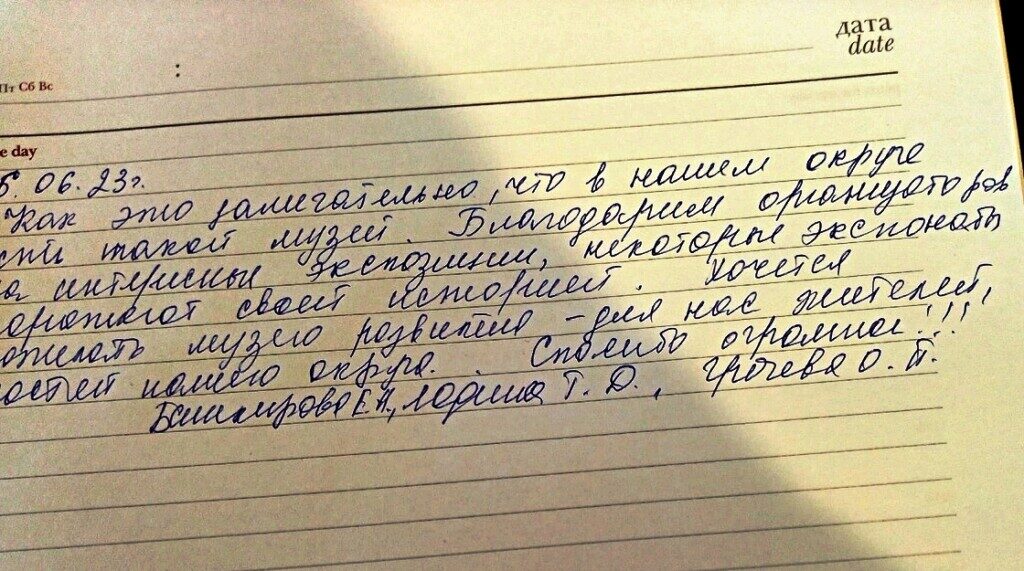 дата
date
Пт Сб Вс
:
e day
5. 06. 23г.
Как это замечательно, что в нашем округе
сть такой музей. Благодарим организаторов
а интересные экспозиции, некоторые экспонаты
оражают своей историей. Хочется
ожелать музею развития - для нас жителей,
остей нашего округа. Спасибо огромное!!!
Башкирова Е.А., Лодина Т. Д., Грачева О. П.